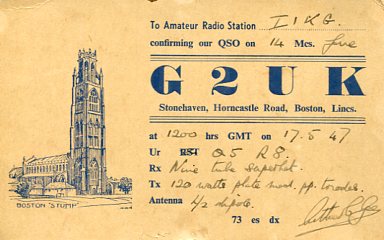 To Amateur Radio Station I1KG.
confirming our QSO on 14 Mcs. fone
G2UK
Stonehaven, Horncastle Road, Boston, Lincs.
at 1200 hrs GMT on 17.5.47
Ur RST Q5 R8.
Rx Nine tube Superhet.
Tx 120 watts plate mod. pp.
Antenna λ/2 dipole.
73 es dx
BOSTON "STUMP"